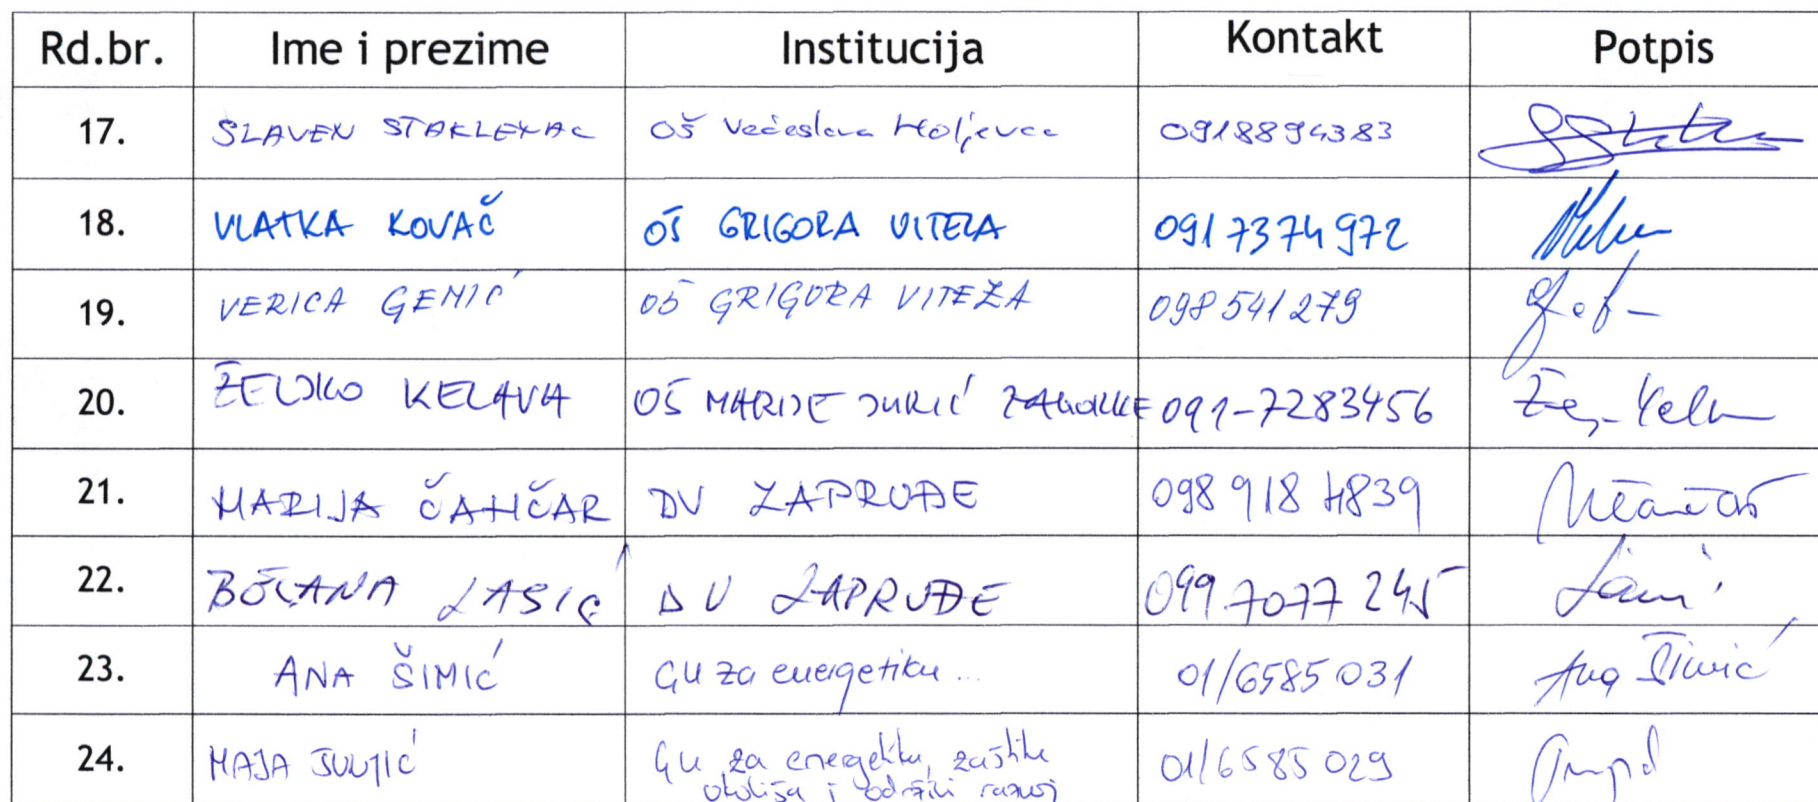 Rd.br. Ime i prezime Institucija Kontakt Potpis
17. SLAVEN STAKLENAC OŠ Većeslava Holjevca 0918894383
18. VLATKA KOVAČ OŠ GRIGORA VITEZA 0917374972
19. VERICA GEMIĆ OŠ GRIGORA VITEZA 098541279
20. ŽELJKO KELAVA OŠ MARIJE JURIĆ ZAGORKE 091-7283456
21. MARIJA ČANČAR DV ZAPRUĐE 098 918 4839
22. LASIĆ DV ZAPRUĐE 099 7077 245
23. ANA ŠIMIĆ GU za energetiku... 01/6585031 Ana Šimić
24. MAJA GU za energetiku, zaštitu 01/6585029
okoliša i održivi razvoj